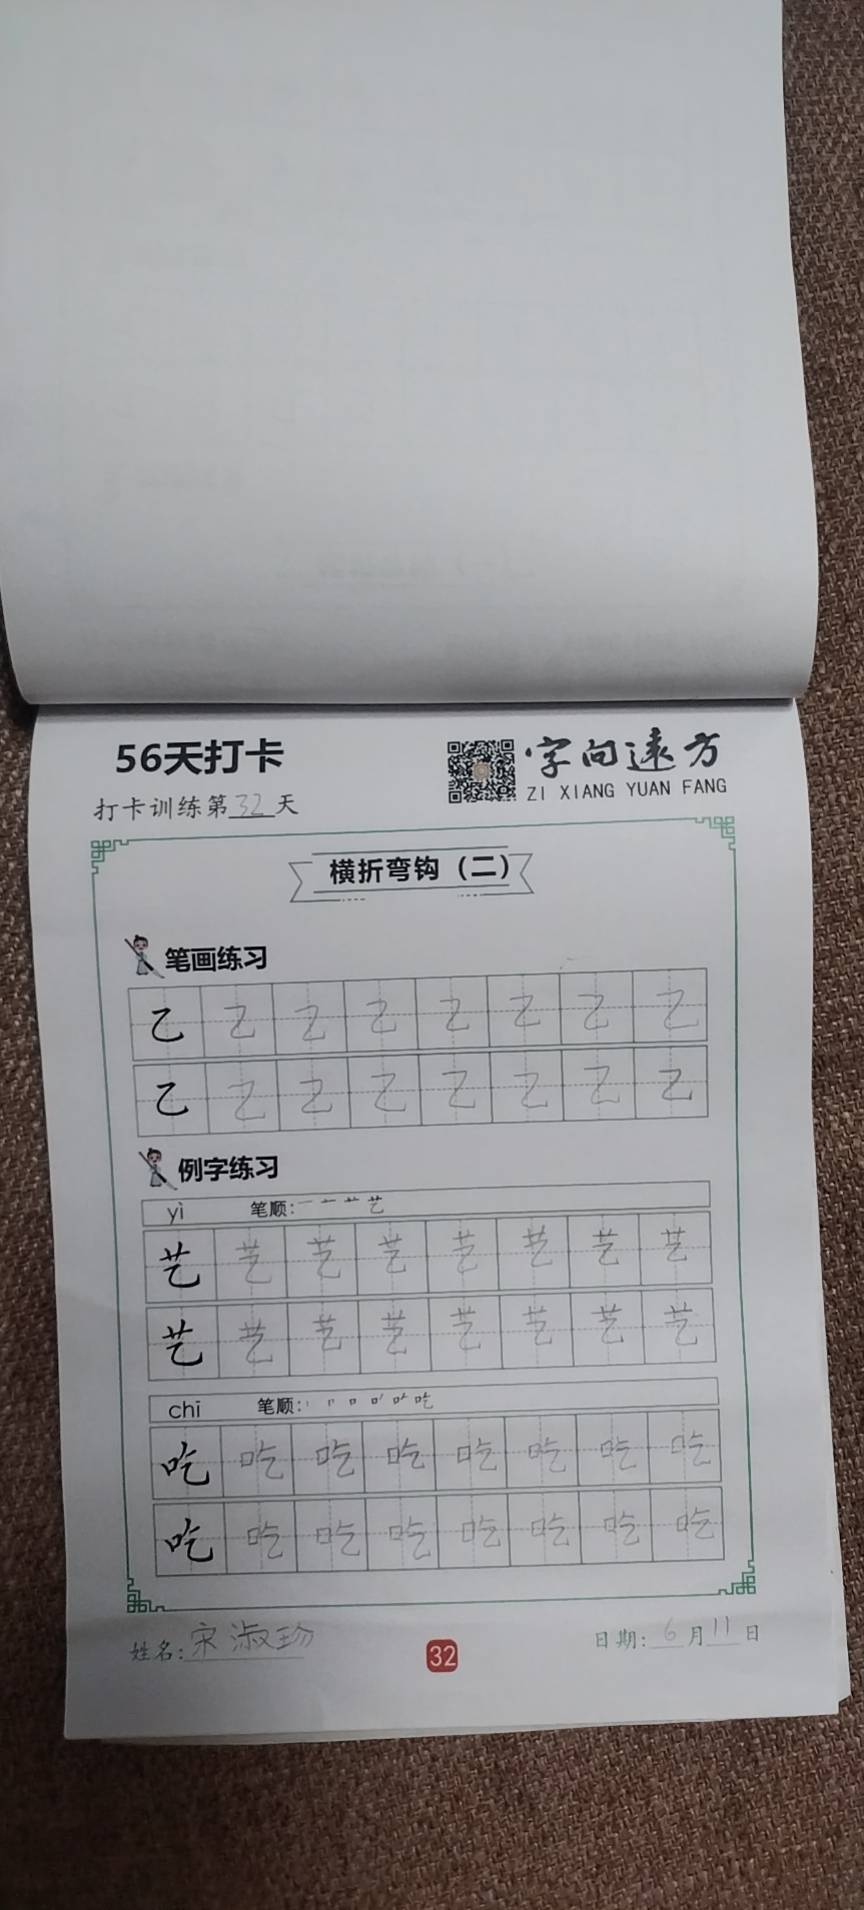 56天打卡
字向远方
ZI XIANG YUAN FANG
打卡训练第32天
横折弯钩（二）
笔画练习
乙 乙 乙 乙 乙 乙 乙 乙
乙 乙 乙 乙 乙 乙 乙 乙
例字练习
yì 笔顺: 一 艺
艺 艺 艺 艺 艺 艺 艺 艺
艺 艺 艺 艺 艺 艺 艺 艺
chī 笔顺: 丨 口 吃
吃 吃 吃 吃 吃 吃 吃 吃
吃 吃 吃 吃 吃 吃 吃 吃
姓名: 宋淑珍
32
日期: 6月11日